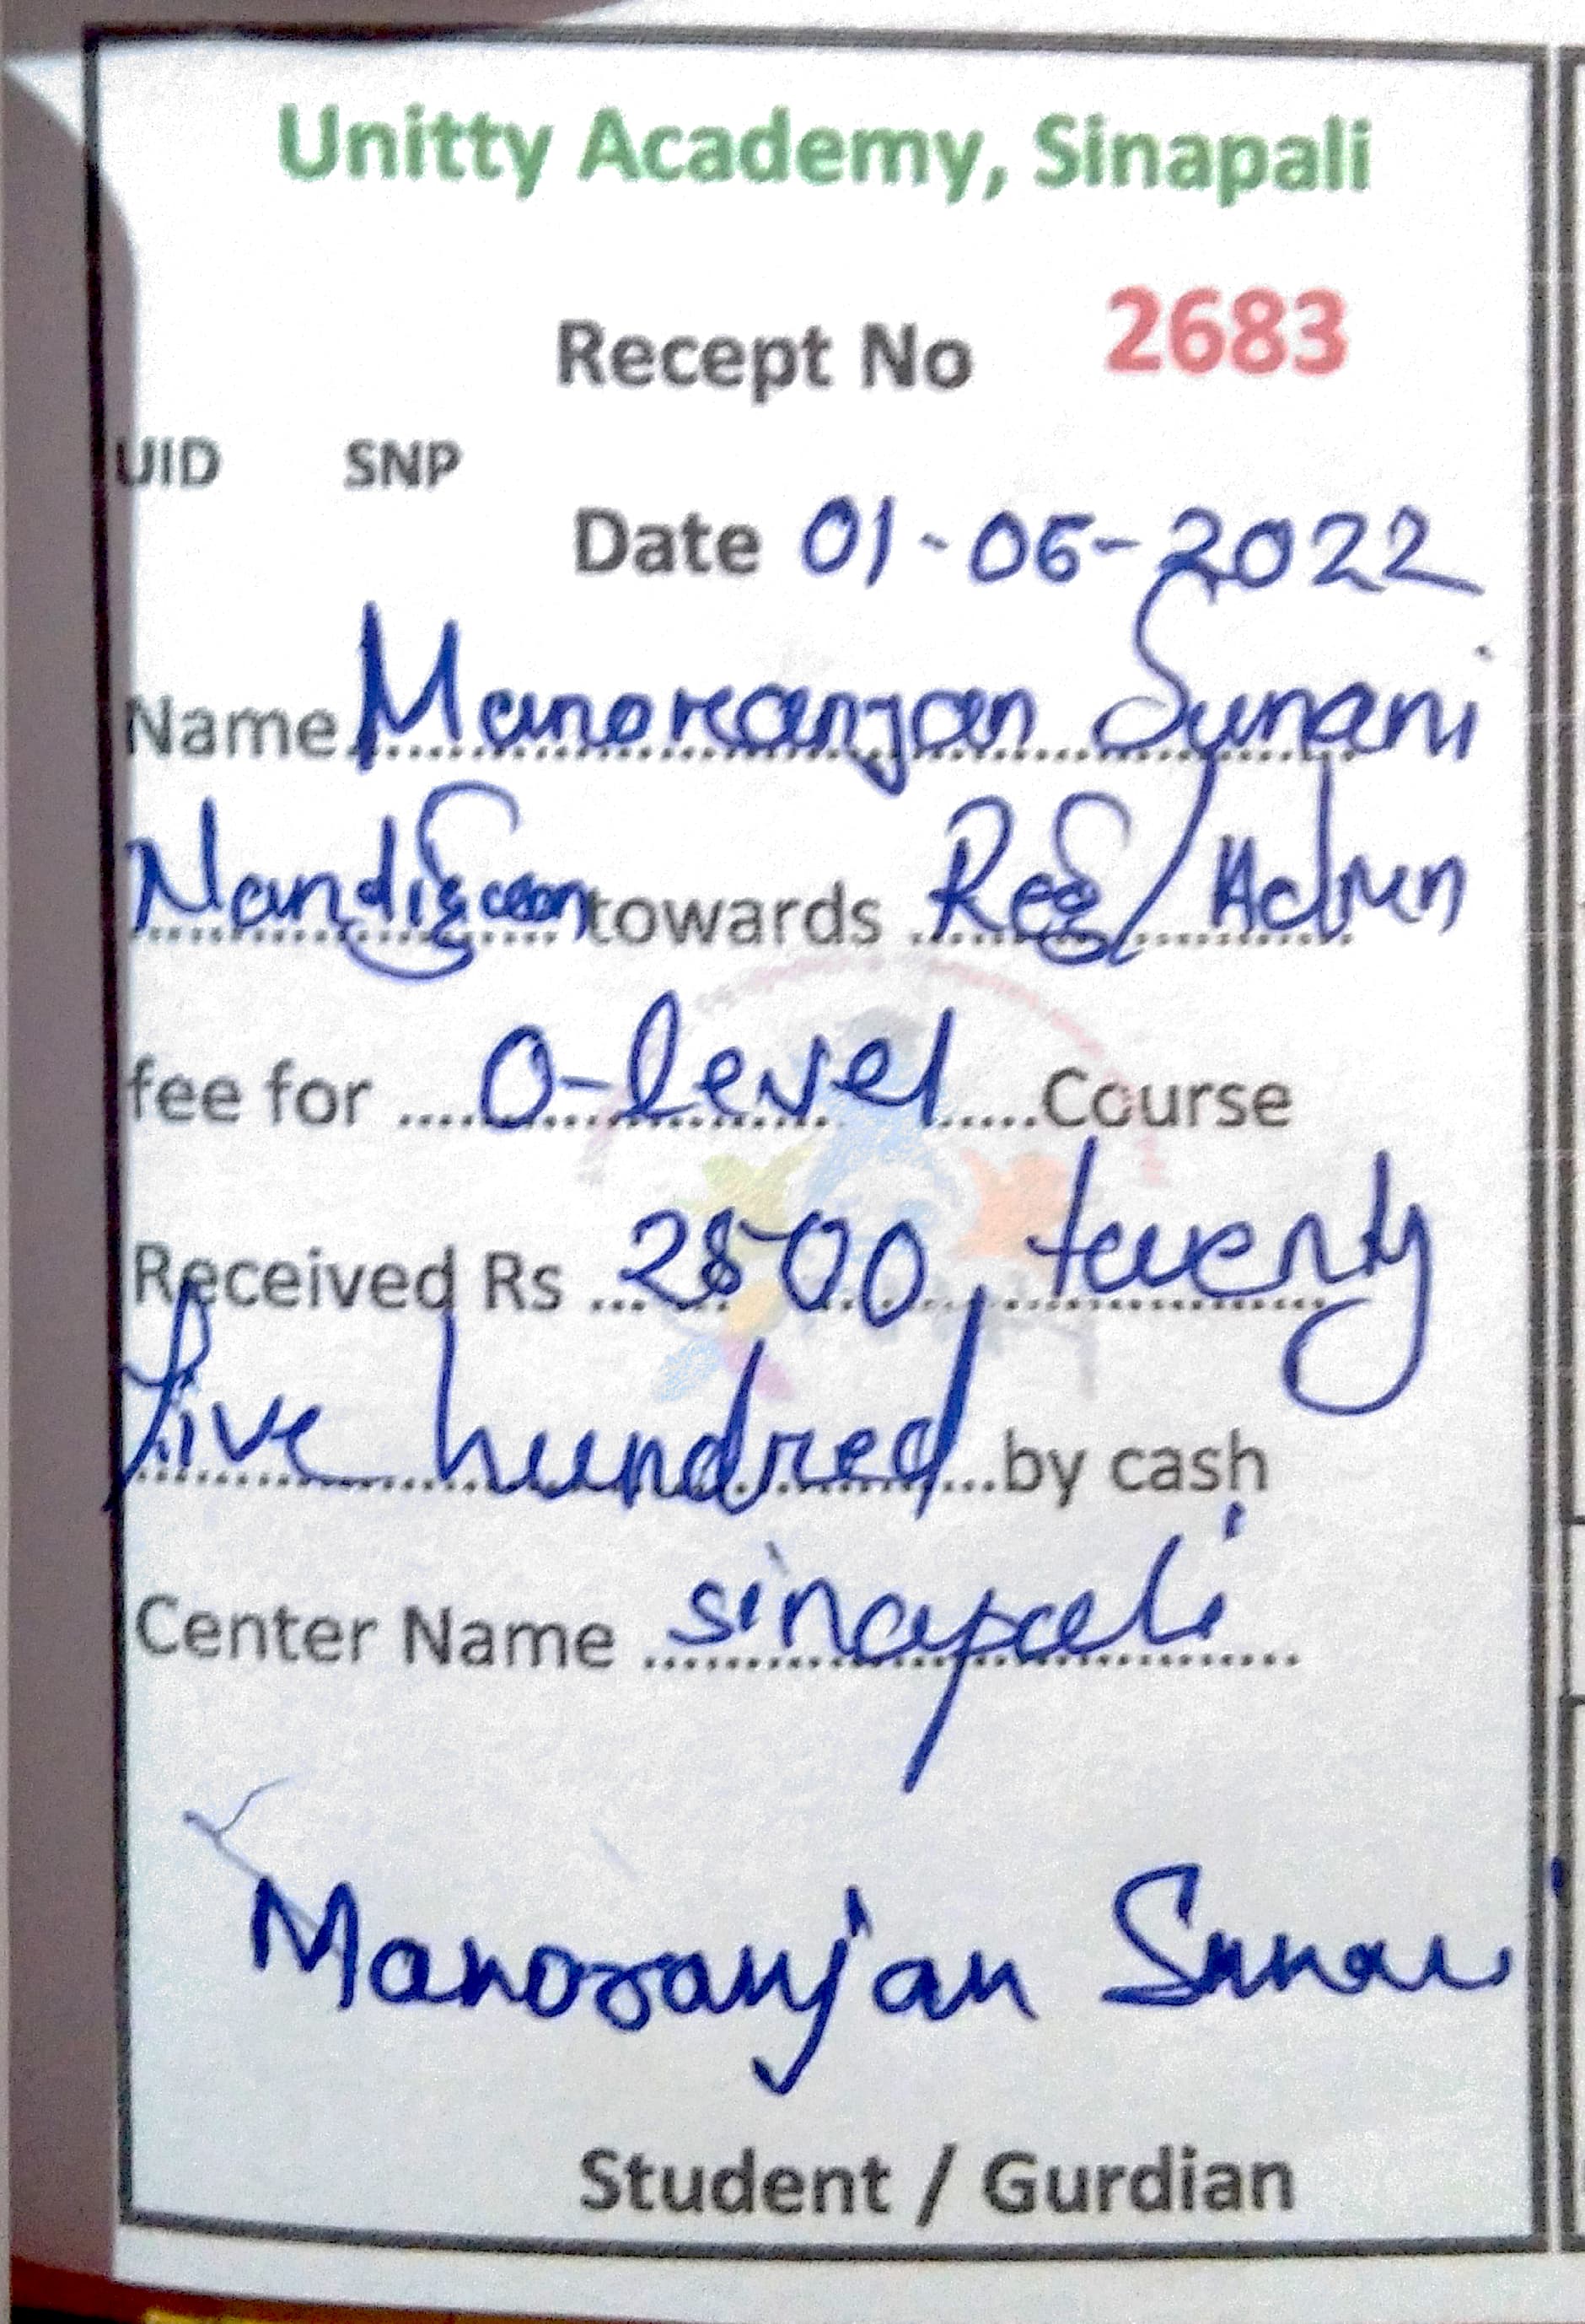 Unitty Academy, Sinapali
Recept No 2683
UID SNP
Date 01-06-2022
Name Manoranjan Sunani
towards Reg/Admn
fee for O-level Course
Received Rs 2500, twenty
five hundred by cash
Center Name sinapali
Manoranjan
Student / Gurdian